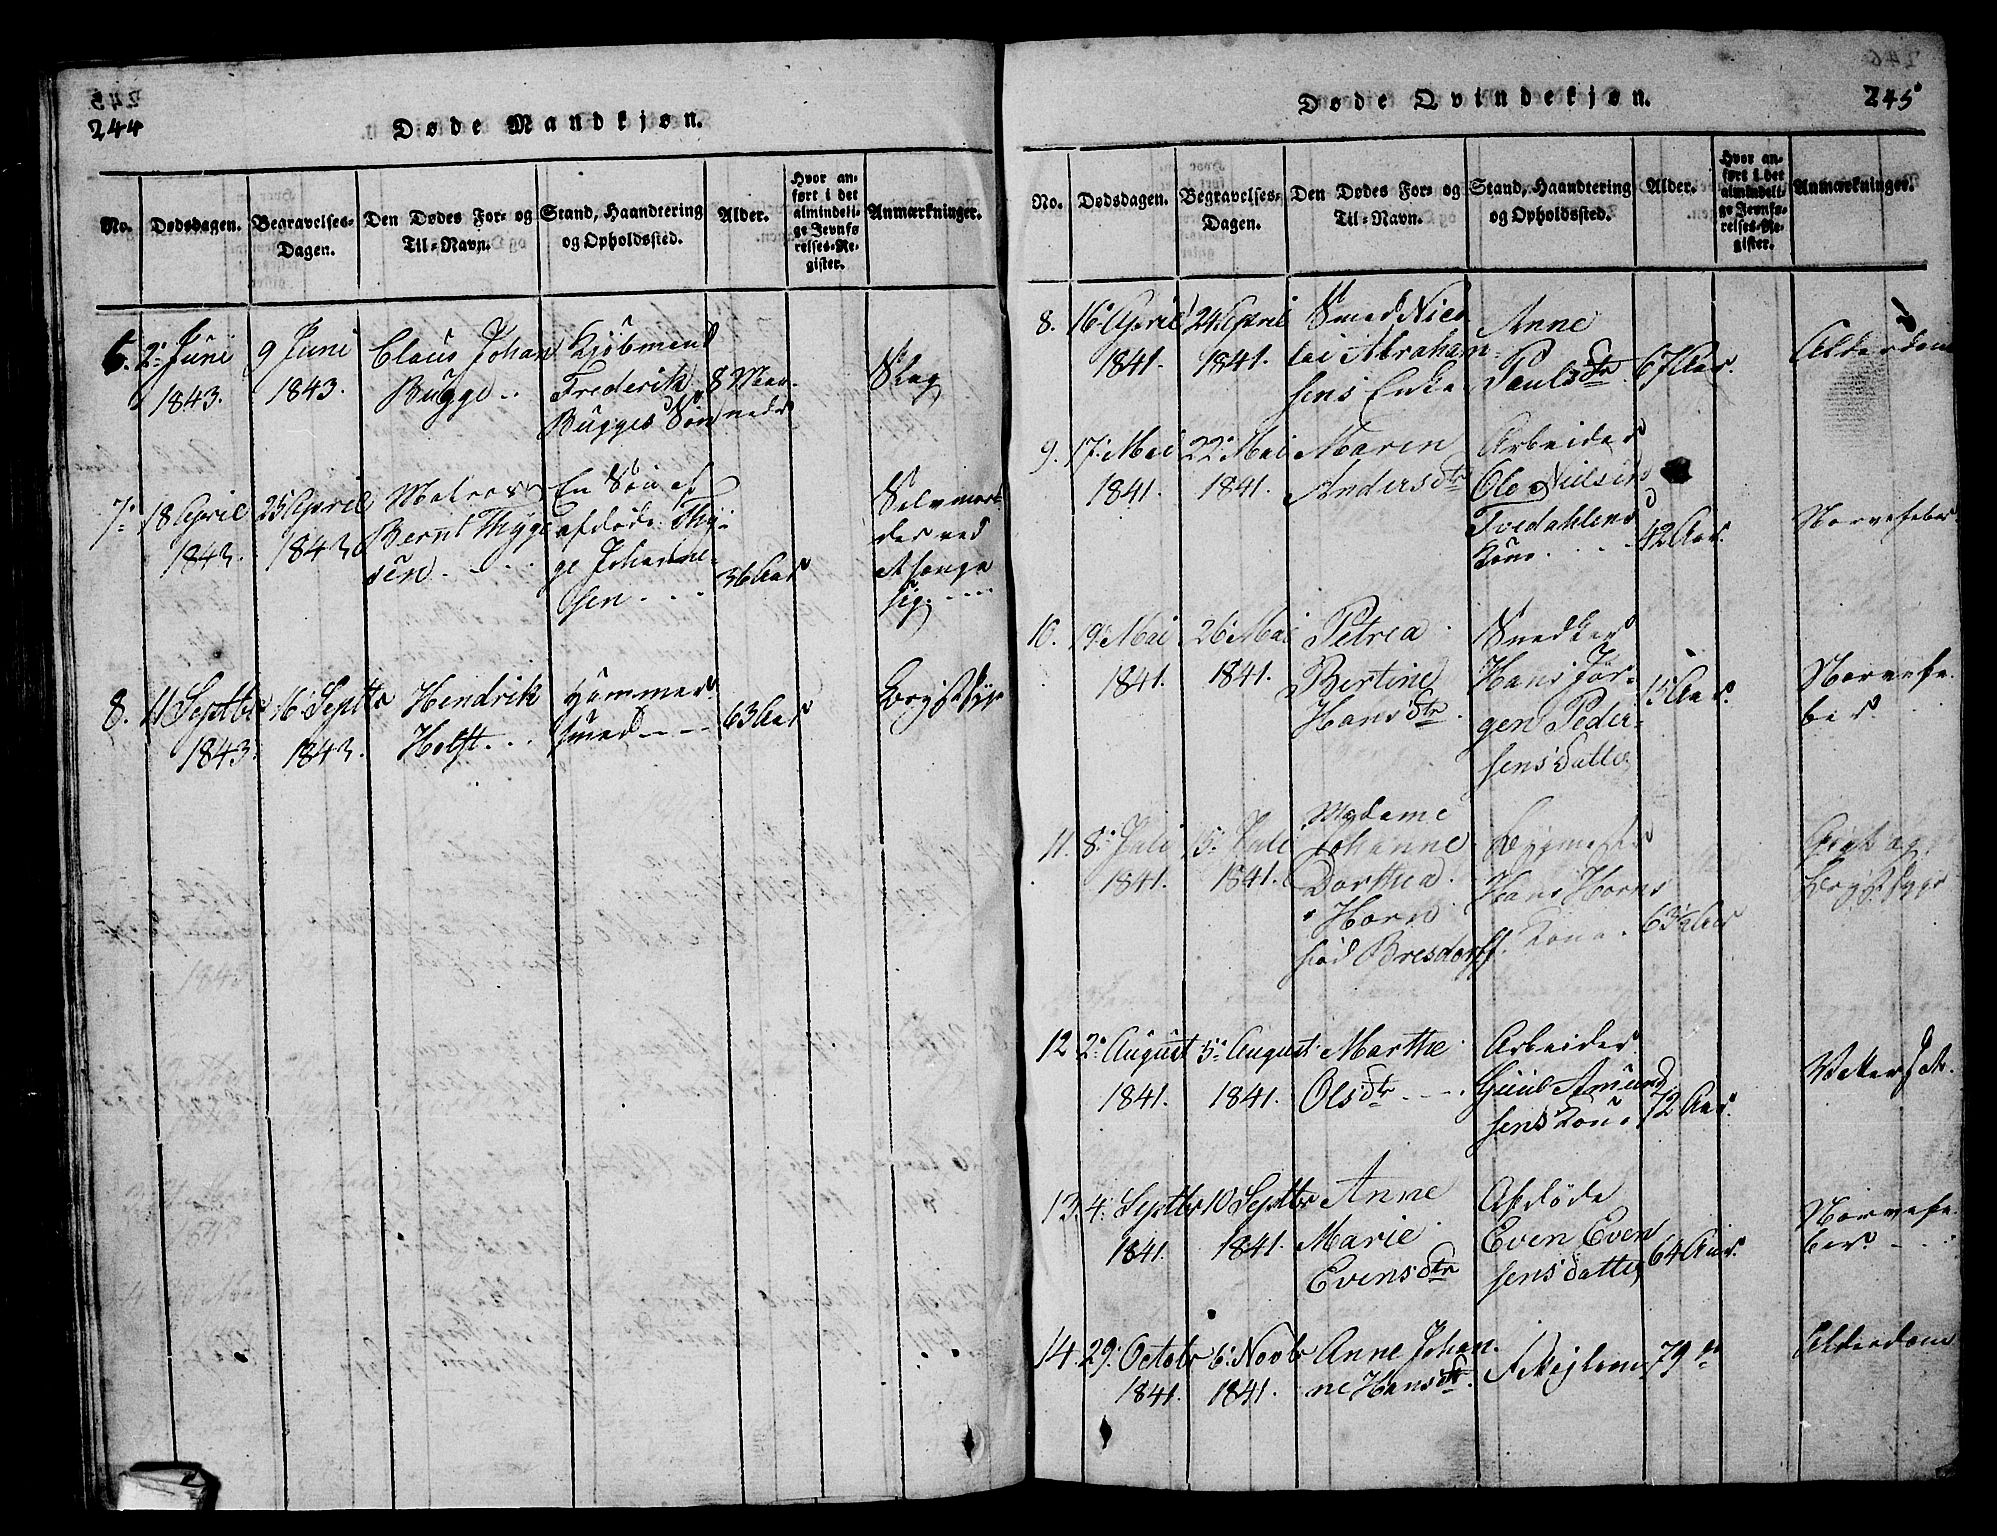 244
Døde Mandkjøn.
No.
Dødsdagen.
Begravelses-
Dagen.
Den Dødes For- og
Til-Navn.
Stand, Haandtering
og Opholdssted.
Alder.
Hvor an-
ført i det
almindeli-
ge Jevnfø
relses-Re-
gister.
Anmærkninger.
6. 2. Juni
1843.
9 Juni
1843.
Claus Johan
Bugge
Kjöbmand
Frederik
Bugges Søn
8 Maa-
neder
Slag
7. 18 April
1843.
25 April
1843
Matros
Bernt Thyge
sen
En Søn af
afdöde Thy-
ge Johanne-
sen
36 Aar
Selvmor-
der ved
at hænge
sig.
8. 11 Septbr
1843.
16 Septbr
1843.
Hendrik
Holst
Hammer
smed
63 Aar
Brystsyge
245
Døde Qvindekjøn.
No.
Dødsdagen.
Begravelses-
Dagen.
Den Dødes For- og
Til-Navn.
Stand, Haandtering
og Opholdssted.
Alder.
Hvor an-
ført i det
almindeli-
ge Jevnfø-
relses-Re-
gister.
Anmærkninger.
8. 16 April
1841.
24 April
1841.
Smed Nico
lai Abraham-
sens Enke
Anne
Paulsdtr
67 Aar.
Alderdom
9. 17. Mai
1841.
22. Mai
1841.
Maren
Andersdtr
Arbeider
Ole Nielsen
Tvedahlens
Kone
42 Aar.
Nervefeber
10. 19. Mai
1841.
26. Mai
1841.
Petrea
Bertine
Hansdtr.
Snedker
Hans Jør-
gen Peder-
sens Datter
15 Aar.
Nervefe-
ber.
11. 8. Juli
1841.
15. Juli
1841.
Madame
Johanne
Dorthea
Horn
fød Bresdorff.
Hans Horns
Kone.
63½ Aar
Gigt og
Brystsyge
12 2. August
1841.
5. August
1841.
Marthe
Olsdtr.
Arbeider
Guul Amund
sens Kone
72 Aar.
13. 4. Septbr
1841.
10 Septbr
1841.
Anne
Marie
Evensdtr
Afdöde
Even Even
sens Datter
64 Aar.
Nervefe-
ber.
14. 29. Octobr
1841.
6. Novbr
1841.
Anne Johan-
ne Hansdtr.
79
Alderdom